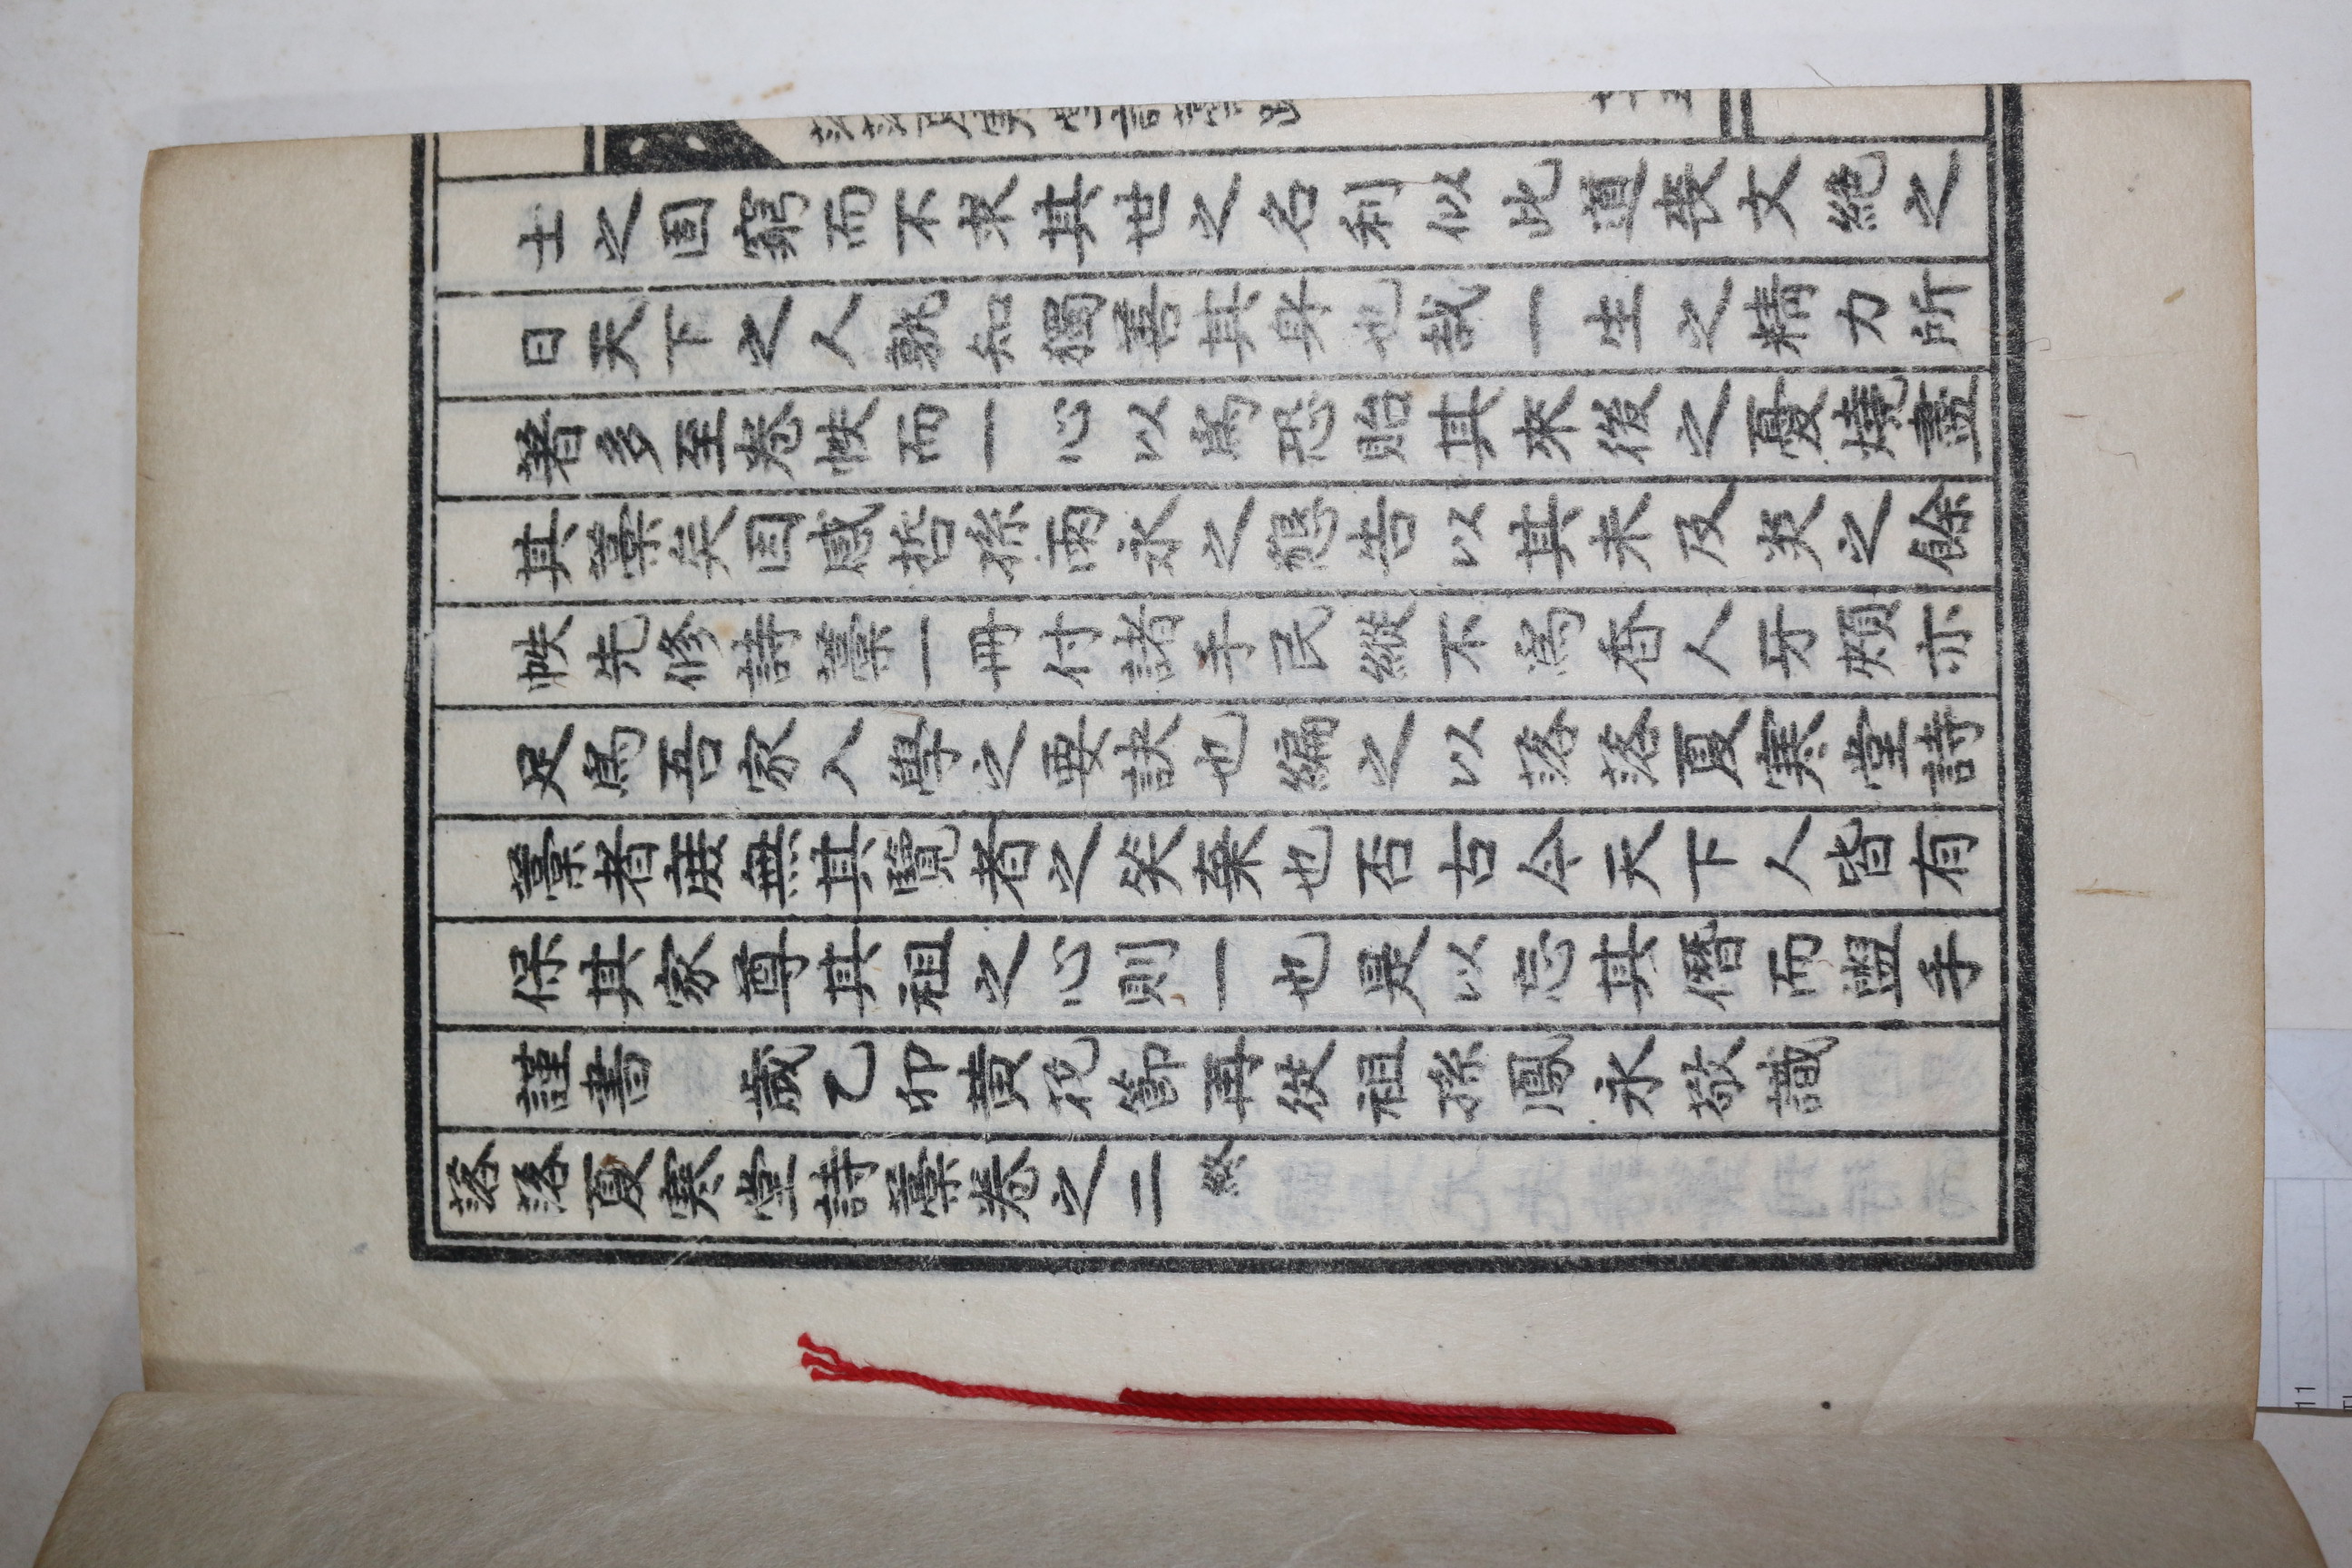 士之固窮而不求其世之名利似此道喪文絶之
日天下之人孰知獨善其身也哉一生之精力所
著多至卷帙而一心以爲恐貽其來後之憂燒盡
其藁矣因感哲孫兩永之懇告以其未及炎之餘
帙先修詩藁一冊付諸手民縱不爲香人牙頰亦
足爲吾家入學之要訣也編之以落落夏寒堂詩
藁者庶無其覽者之笑棄也否古今天下人皆有
保其家尊其祖之心則一也是以忘其僭而盥手
謹書 歲乙卯黄花節再從祖孫鳳永敬識
落落夏寒堂詩藁卷之二 終
11